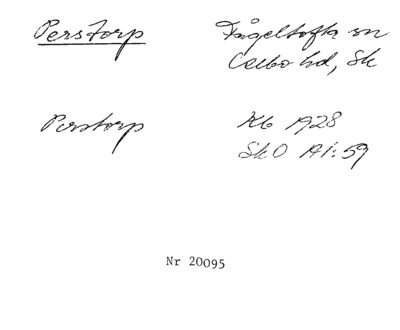 Perstorp
Fågeltofta sn
Albo hd, Sk
Perstorp
Kb 1928
SkO A1:59
Nr 20095